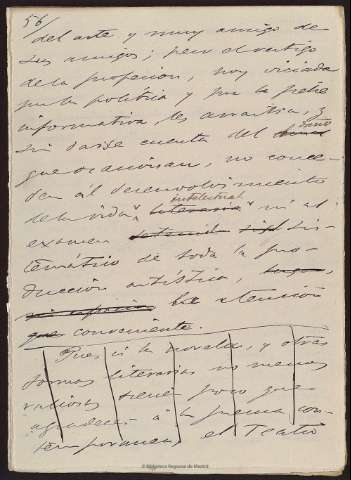 56/
del arte y muy amigo de
sus amigos; pero el vertigo
de la profesion, hoy viciada
por la política y por la fiebre
informativa, les arrastra, y
sin darse cuenta del
que ocasionan, no conce-
den al desenvolvimiento
intelectual
de la vida literaria ni al
examen sis-
temático de toda la pro-
duccion artística,
la atencion
que conveniente.
Pues si la novela, y otras
formas literarias no menos
valiosas tienen poco que
agradecer á la prensa con-
temporanea, el Teatro
© Biblioteca Regional de Madrid